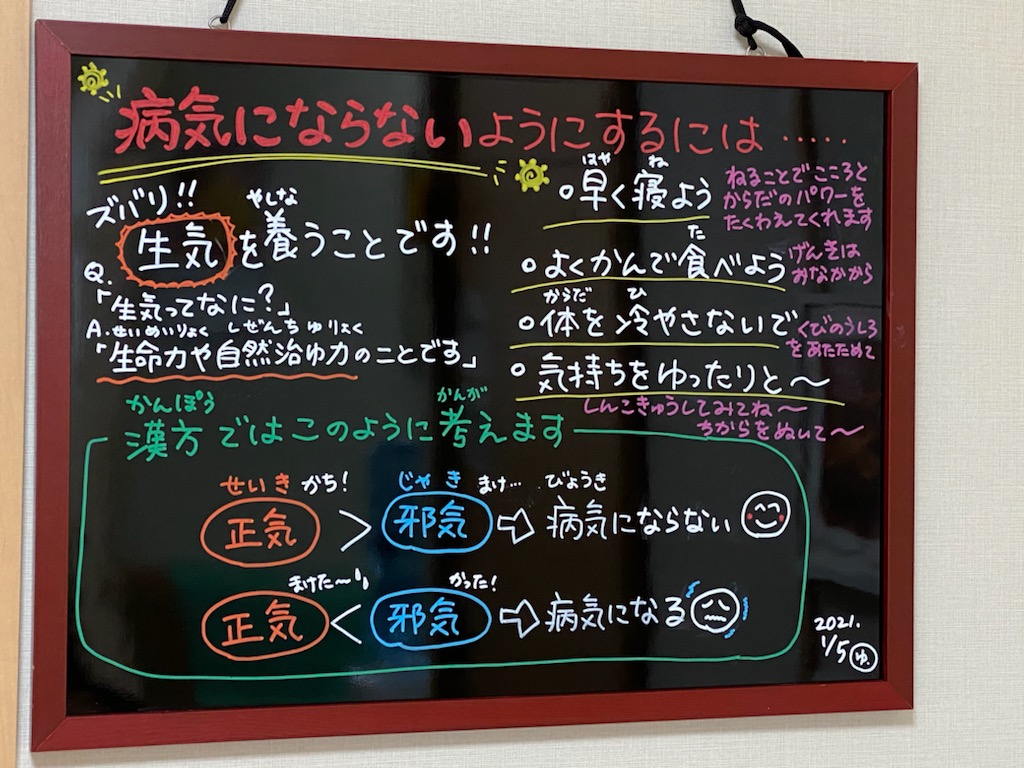 病気にならないようにするには……
ズバリ!!
やしな
生気を養うことです!!
Q.
「生気ってなに?」
A.せいめいりょく しぜんちゆりょく
「生命力や自然治ゆ力のことです」
はや ね
。早く寝よう
ねることでこころと
からだのパワーを
たくわえてくれます
た
。よくかんで食べよう
げんきは
おなかから
からだ ひ
。体を冷やさないで
くびのうしろ
をあたためて
。気持ちをゆったりと～
しんこきゅうしてみてね～
ちからをぬいて～
かんぽう かんが
漢方ではこのように考えます
せいき かち! じゃき まけ… びょうき
正気 > 邪気 ⇨ 病気にならない
まけた～ かった!
正気 < 邪気 ⇨ 病気になる
2021.
1/5 ゆ.